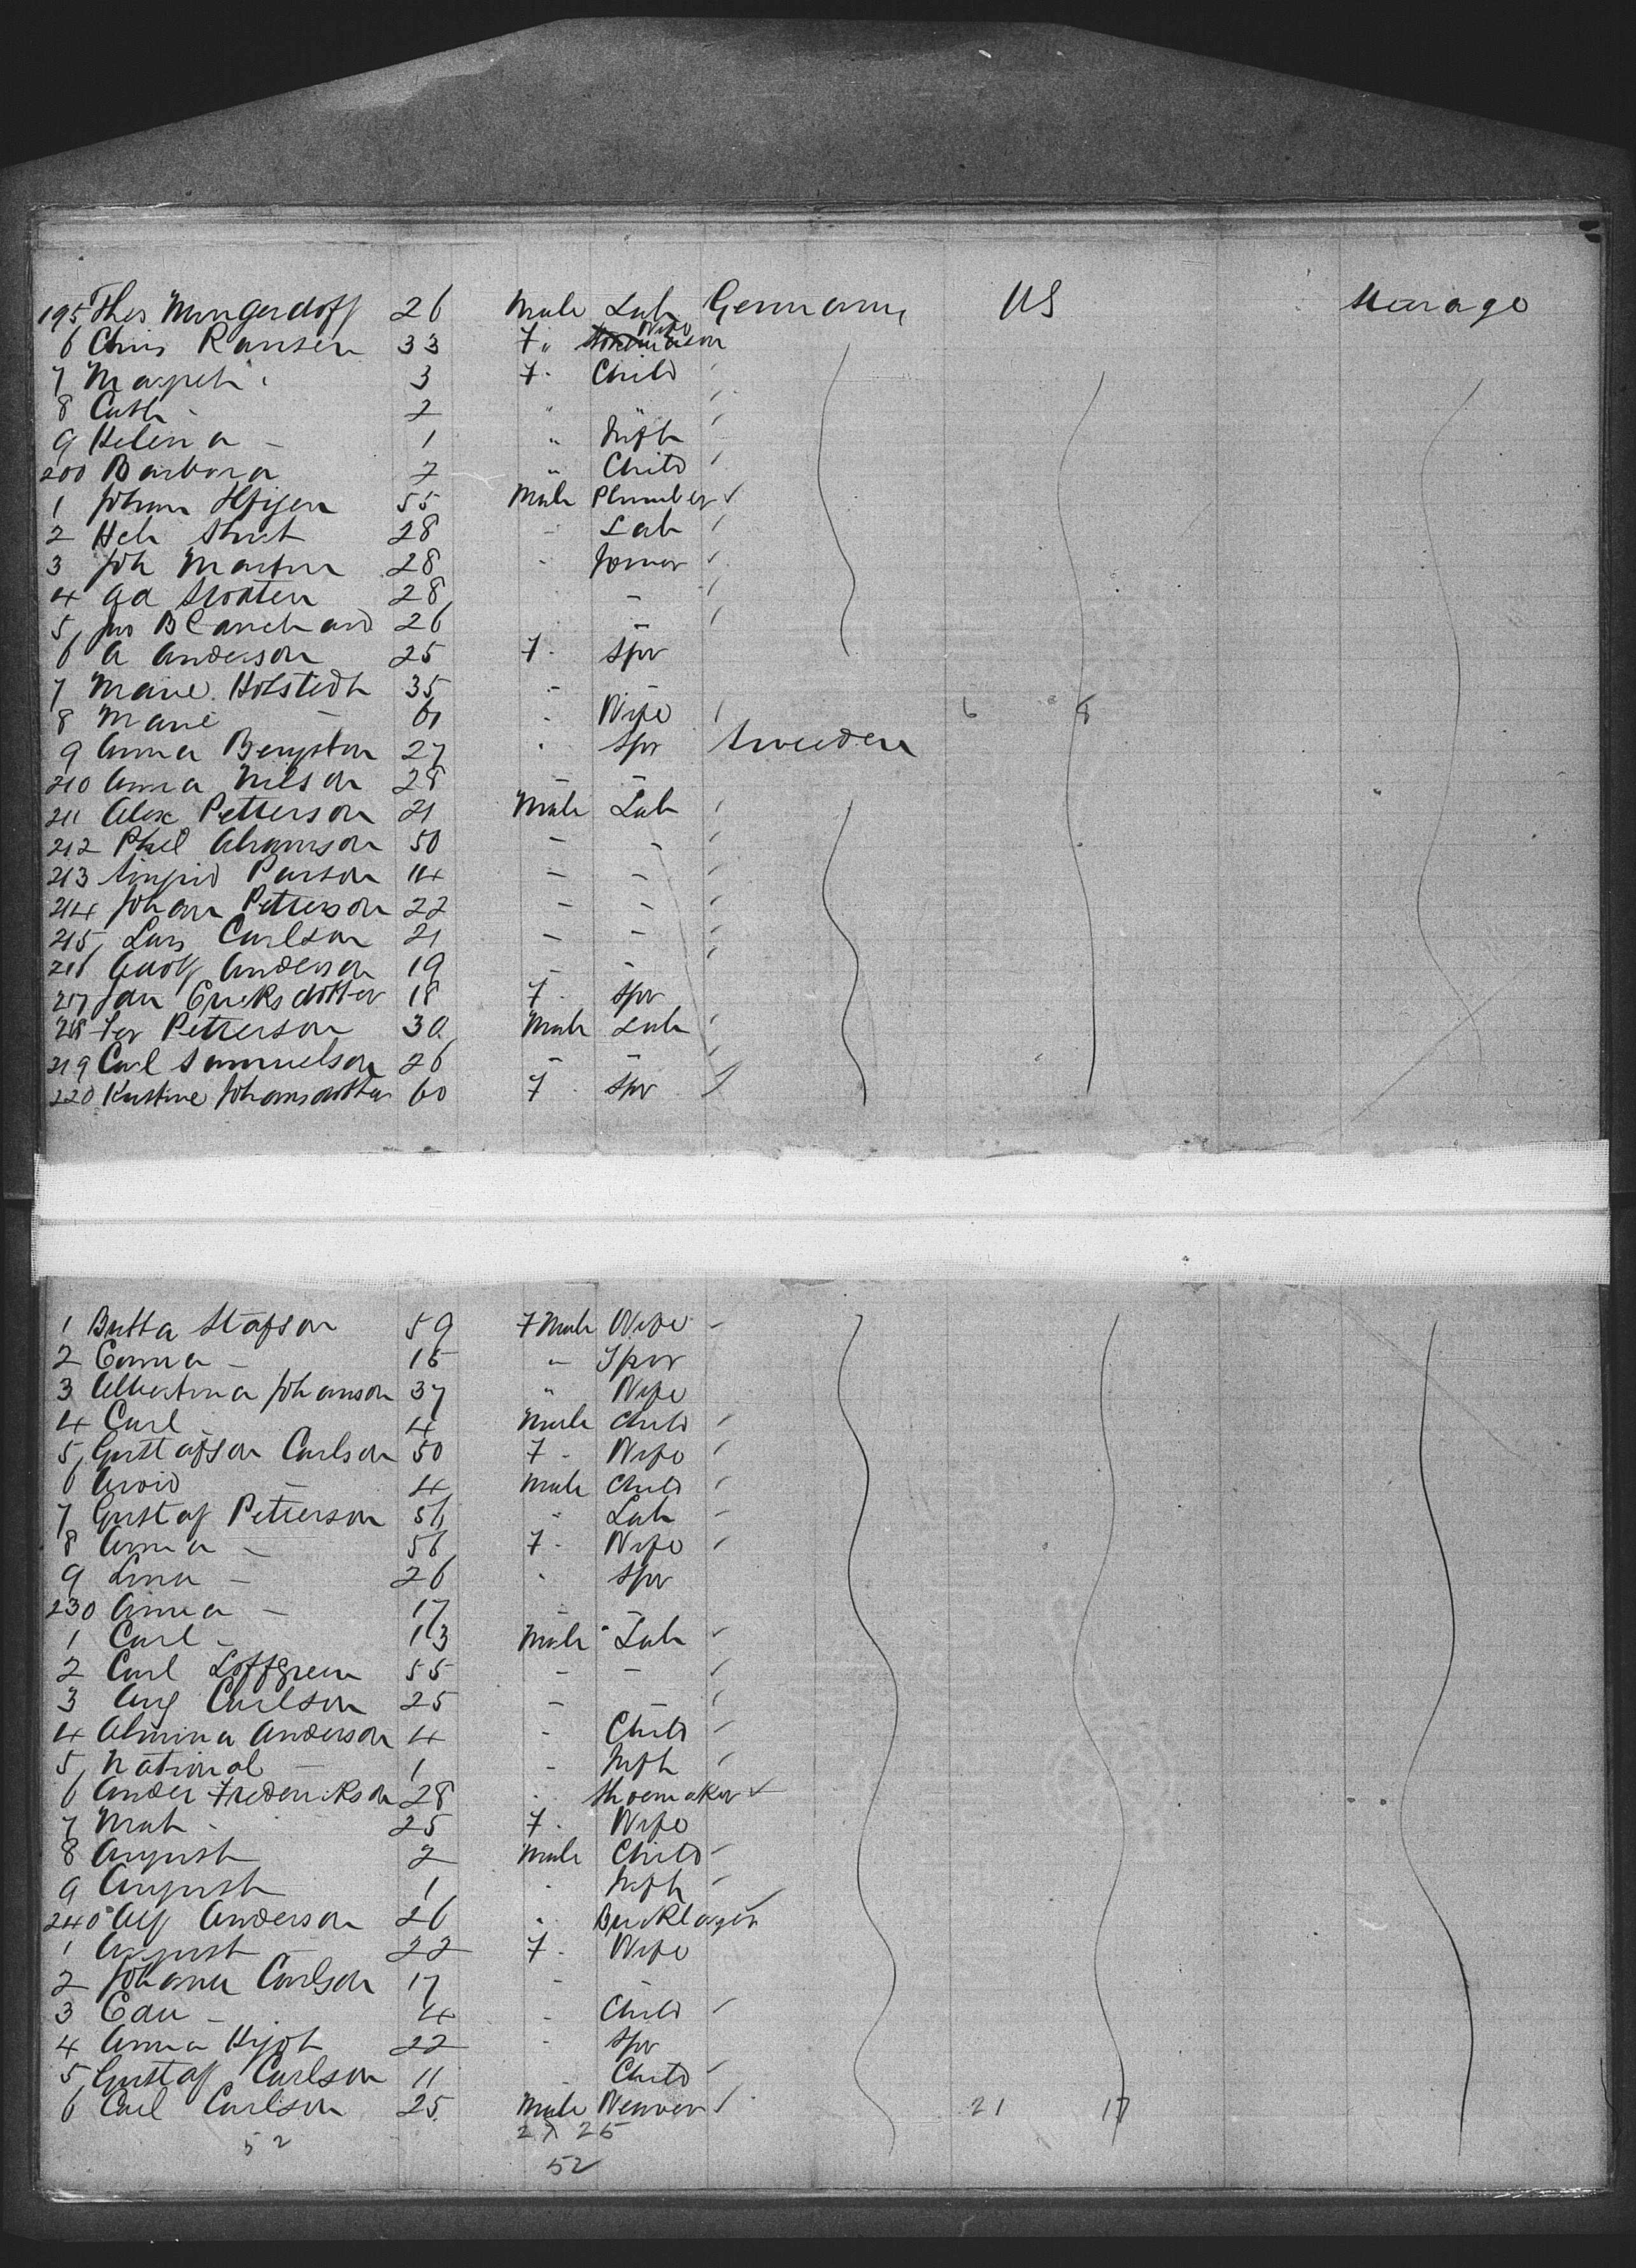 195 Thos Mungerdoff 26 Male Lab Germany US Steerage
6 Chris Ransen 33 F " Wife
7 Margreth " 3 F - Child
8 Cath - 2 "
9 Helena - 1 " Infth
200 Barbara 7 " Child
1 Johan 55 Male Plumber
2 Hch 28 - Lab
3 Joh Martin 28 - Joiner
4 Ad 28 -
5 Jno Blanchard 26 -
6 A Anderson 25 F - Spr
7 Marie Holstedt 35 - -
8 Marie - 61 - Wife 6 8
9 Anna Bengston 27 - Spr Sweeden
210 Anna Nilson 28 - -
211 Alex Petterson 21 Male Lab
212 Phil Abramson 50 - -
213 Parson 14 - -
214 Johan Petterson 22 - -
215 Lars Carlson 21 - -
216 Adolf Anderson 19 - -
217 Jan Ericksdotter 18 F - Spr
218 Per Petterson 30 Male Lab
219 Carl Samuelson 26 - -
220 Kristine Johansdotter 60 F - Spr
1 Britta Stafson 59 F Male Wife -
2 Emma - 16 - Spr
3 Albertina Johanson 37 " Wife
4 Carl - 4 Male Child
5 Gustafson Carlson 50 F - Wife
6 Arvid - 4 Male Child
7 Gustaf Petterson 56 " Lab
8 Anna - 56 F - Wife
9 Lina - 26 - Spr
230 Anna - 17 - -
1 Carl - 13 Male Lab
2 Carl Loffgren 55 - -
3 Aug Carlson 25 - -
4 Almina Anderson 4 - Child
5 National - 1 - Infh
6 Ander Frederikson 28 - Shoemaker
7 Math - 25 F - Wife
8 August 2 Male Child
9 August 1 - Infh
240 Alf Anderson 26 - Bricklayer
1 August - 22 F - Wife
2 Johanna Carlson 17 - -
3 Edu - 4 - Child
4 Anna 22 - Spr
5 Gustaf Carlson 11 - Child
6 Carl Carlson 25 Male Weaver 21 17
52 27 25
52